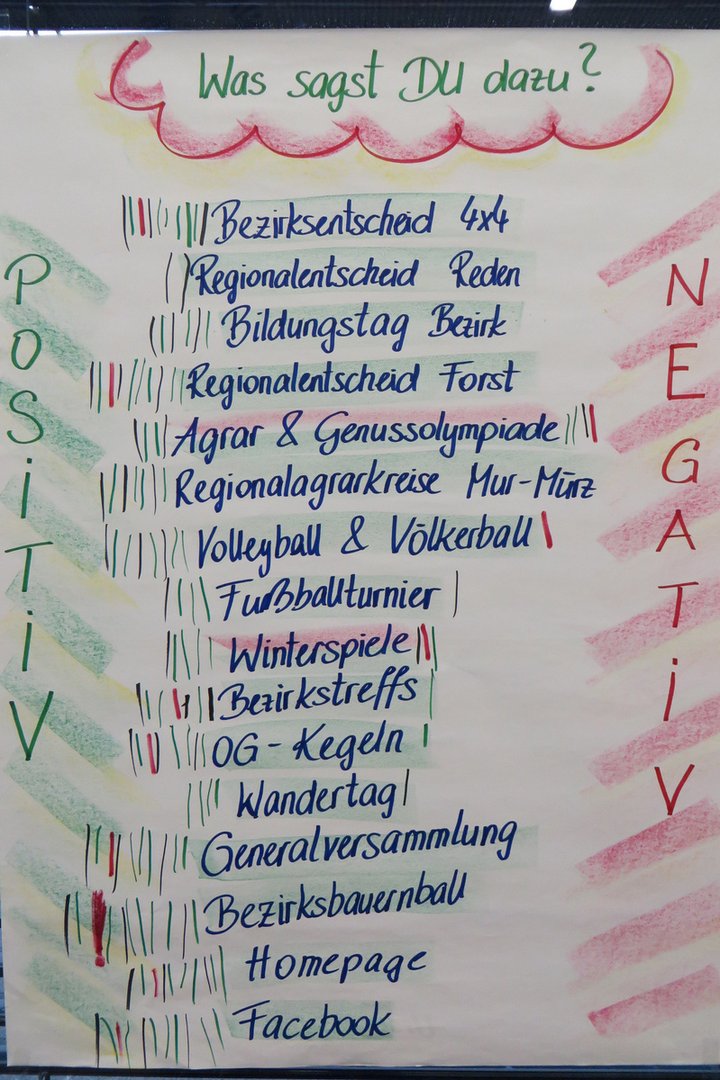 Was sagst DU dazu?
POSiTiV
NEGATiV
Bezirksentscheid 4x4
Regionalentscheid Reden
Bildungstag Bezirk
Regionalentscheid Forst
Agrar & Genussolympiade
Regionalagrarkreise Mur-Mürz
Volleyball & Völkerball
Fußballturnier
Winterspiele
Bezirkstreffs
OG - Kegeln
Wandertag
Generalversammlung
Bezirksbauernball
Homepage
Facebook